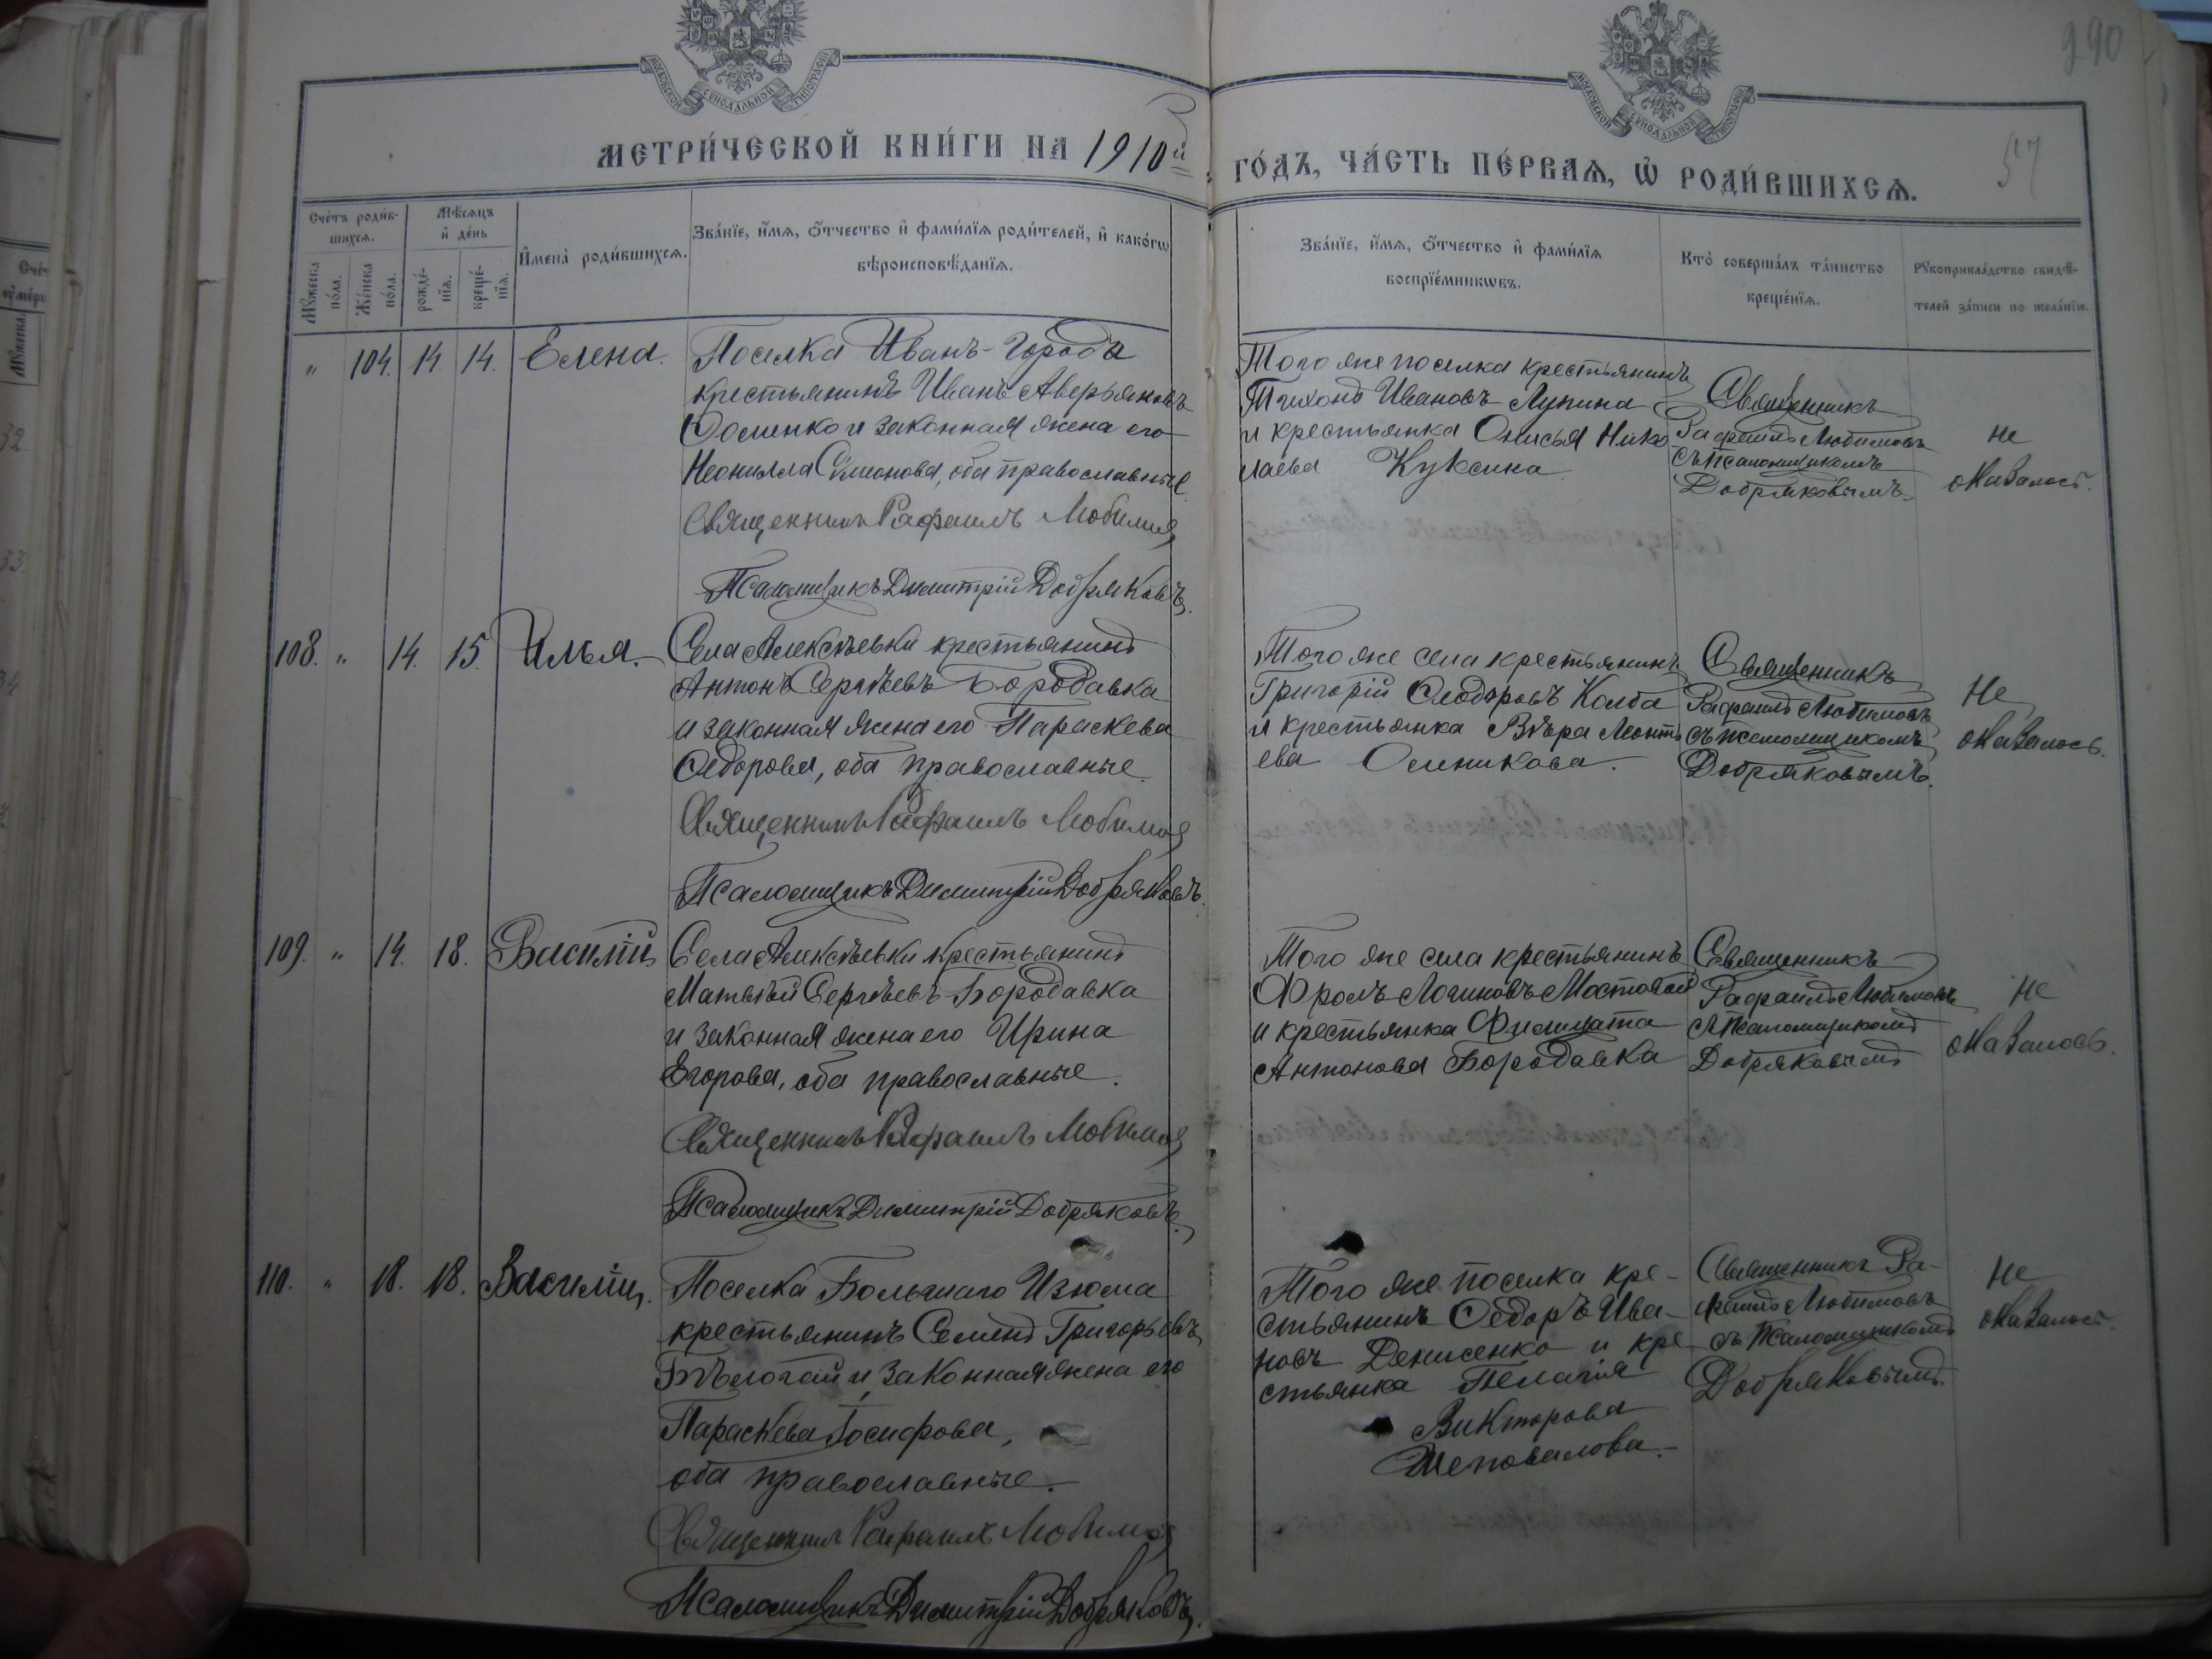 290
57
МОСКОВСКОЙ СѴНОДАЛЬНОЙ ТИПОГРАФІИ
МОСКОВСКОЙ СѴНОДАЛЬНОЙ ТИПОГРАФІИ
МЕТРИ́ЧЕСКОЙ КНИ́ГИ НА 1910й
ГО́ДЪ, ЧА́СТЬ ПЕ́РВАѦ, Ѿ РОДИ́ВШИХСѦ.
Сче́тъ роди́в-
шихсѧ.
Мꙋ́жеска
по́ла.
Же́нска
по́ла.
Мѣ́сѧцъ
и҆ де́нь
рожде́-
нїѧ.
креще́-
нїѧ.
И҆мена̀ роди́вшихсѧ.
Зва́нїе, и҆́мѧ, ѻ҆́тчество и҆ фами́лїѧ роди́телей, и҆ како́гѡ
вѣроисповѣ́данїѧ.
Зва́нїе, и҆́мѧ, ѻ҆́тчество и҆ фами́лїѧ
воспрїе́мникѡвъ.
Кто̀ соверша́лъ та́инство
креще́нїѧ.
Рꙋкоприкла́дство свидѣ́-
телей за́писи по жела́нїю.
" 104. 14. 14. Елена.
Поселка Иванъ-Города
крестьянинъ Иванъ Аверьяновъ
Ѳоменко и законная жена его
Неонилла Симонова, оба православные.
Священникъ Рафаилъ Любимов
Псаломщикъ Димитрій Добряковъ.
Того же поселка крестьянинъ
Тихонъ Ивановъ Лупина
и крестьянка Онисья Нико
лаева Куксина
Священникъ
Рафаилъ Любимовъ
съ псаломщикомъ
Добряковымъ.
Не
оказалось.
108. " 14. 15. Илья.
Села Алексѣевки крестьянинъ
Антонъ Сергѣевъ Бородавка
и законная жена его Параскева
Ѳедорова, оба православные.
Священникъ Рафаилъ Любимов
Псаломщикъ Димитрій Добряковъ.
Того же села крестьянинъ
Григорій Ѳеодоровъ Колба
и крестьянка Вѣра Леонть
ева Оленикова.
Священникъ
Рафаилъ Любимовъ
съ псаломщикомъ
Добряковымъ.
Не
оказалось.
109. " 14. 18. Василій
Села Алексѣевки крестьянинъ
Матвѣй Сергѣевъ Бородавка
и законная жена его Ирина
Егорова, оба православные.
Священникъ Рафаилъ Любимов
Псаломщикъ Димитрій Добряковъ.
Того же села крестьянинъ
Фролъ Логиновъ Мостовой
и крестьянка Филицата
Антонова Бородавка
Священникъ
Рафаилъ Любимовъ
съ псаломщикомъ
Добряковымъ
Не
оказалось.
110. " 18. 18. Василій.
Поселка Большаго Изюма
крестьянинъ Семенъ Григорьевъ
Бѣлогай и законная жена его
Параскева Іосифова,
оба православные.
Священникъ Рафаилъ Любимов
Псаломщикъ Димитрій Добряковъ.
Того же поселка кре-
стьянинъ Ѳедоръ Ива-
новъ Денисенко и кре-
стьянка Пелагія
Викторова
Шеповалова.
Священникъ Ра-
фаилъ Любимовъ
съ псаломщикомъ
Добряковымъ.
Не
оказалось.